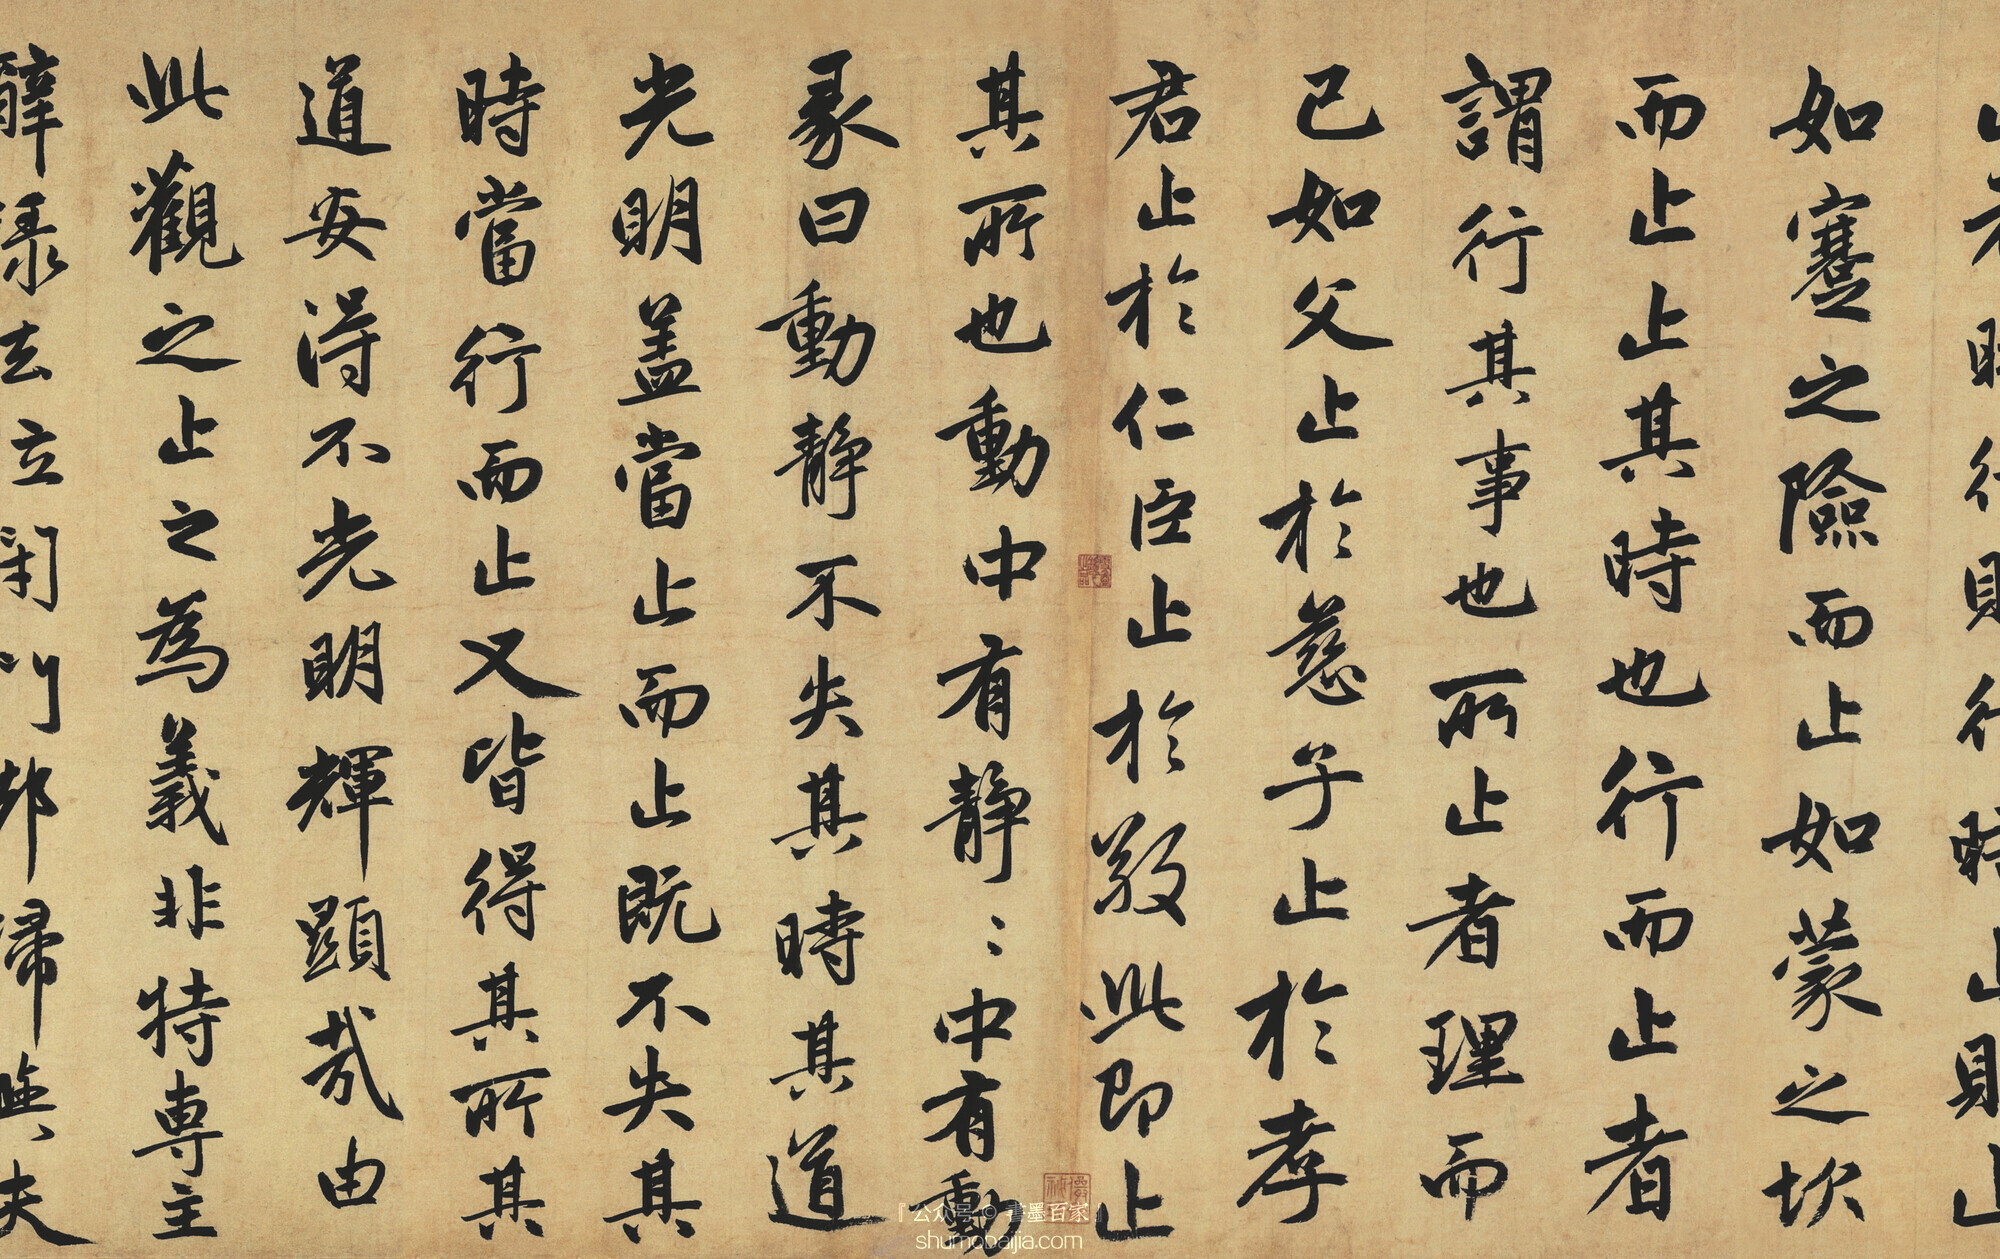 如蹇之險而止如蒙之坎
而止止其時也行而止者
謂行其事也所止者理而
已如父止於慈子止於孝
君止於仁臣止於敬此即止
其所也動中有靜〻中有動
彖曰動靜不失其時其道
光明盖當止而止既不失其
時當行而止又皆得其所其
道安得不光明輝顯哉由
此觀之止之為義非特専主
『公众号©書墨百家』
shumobaijia.com